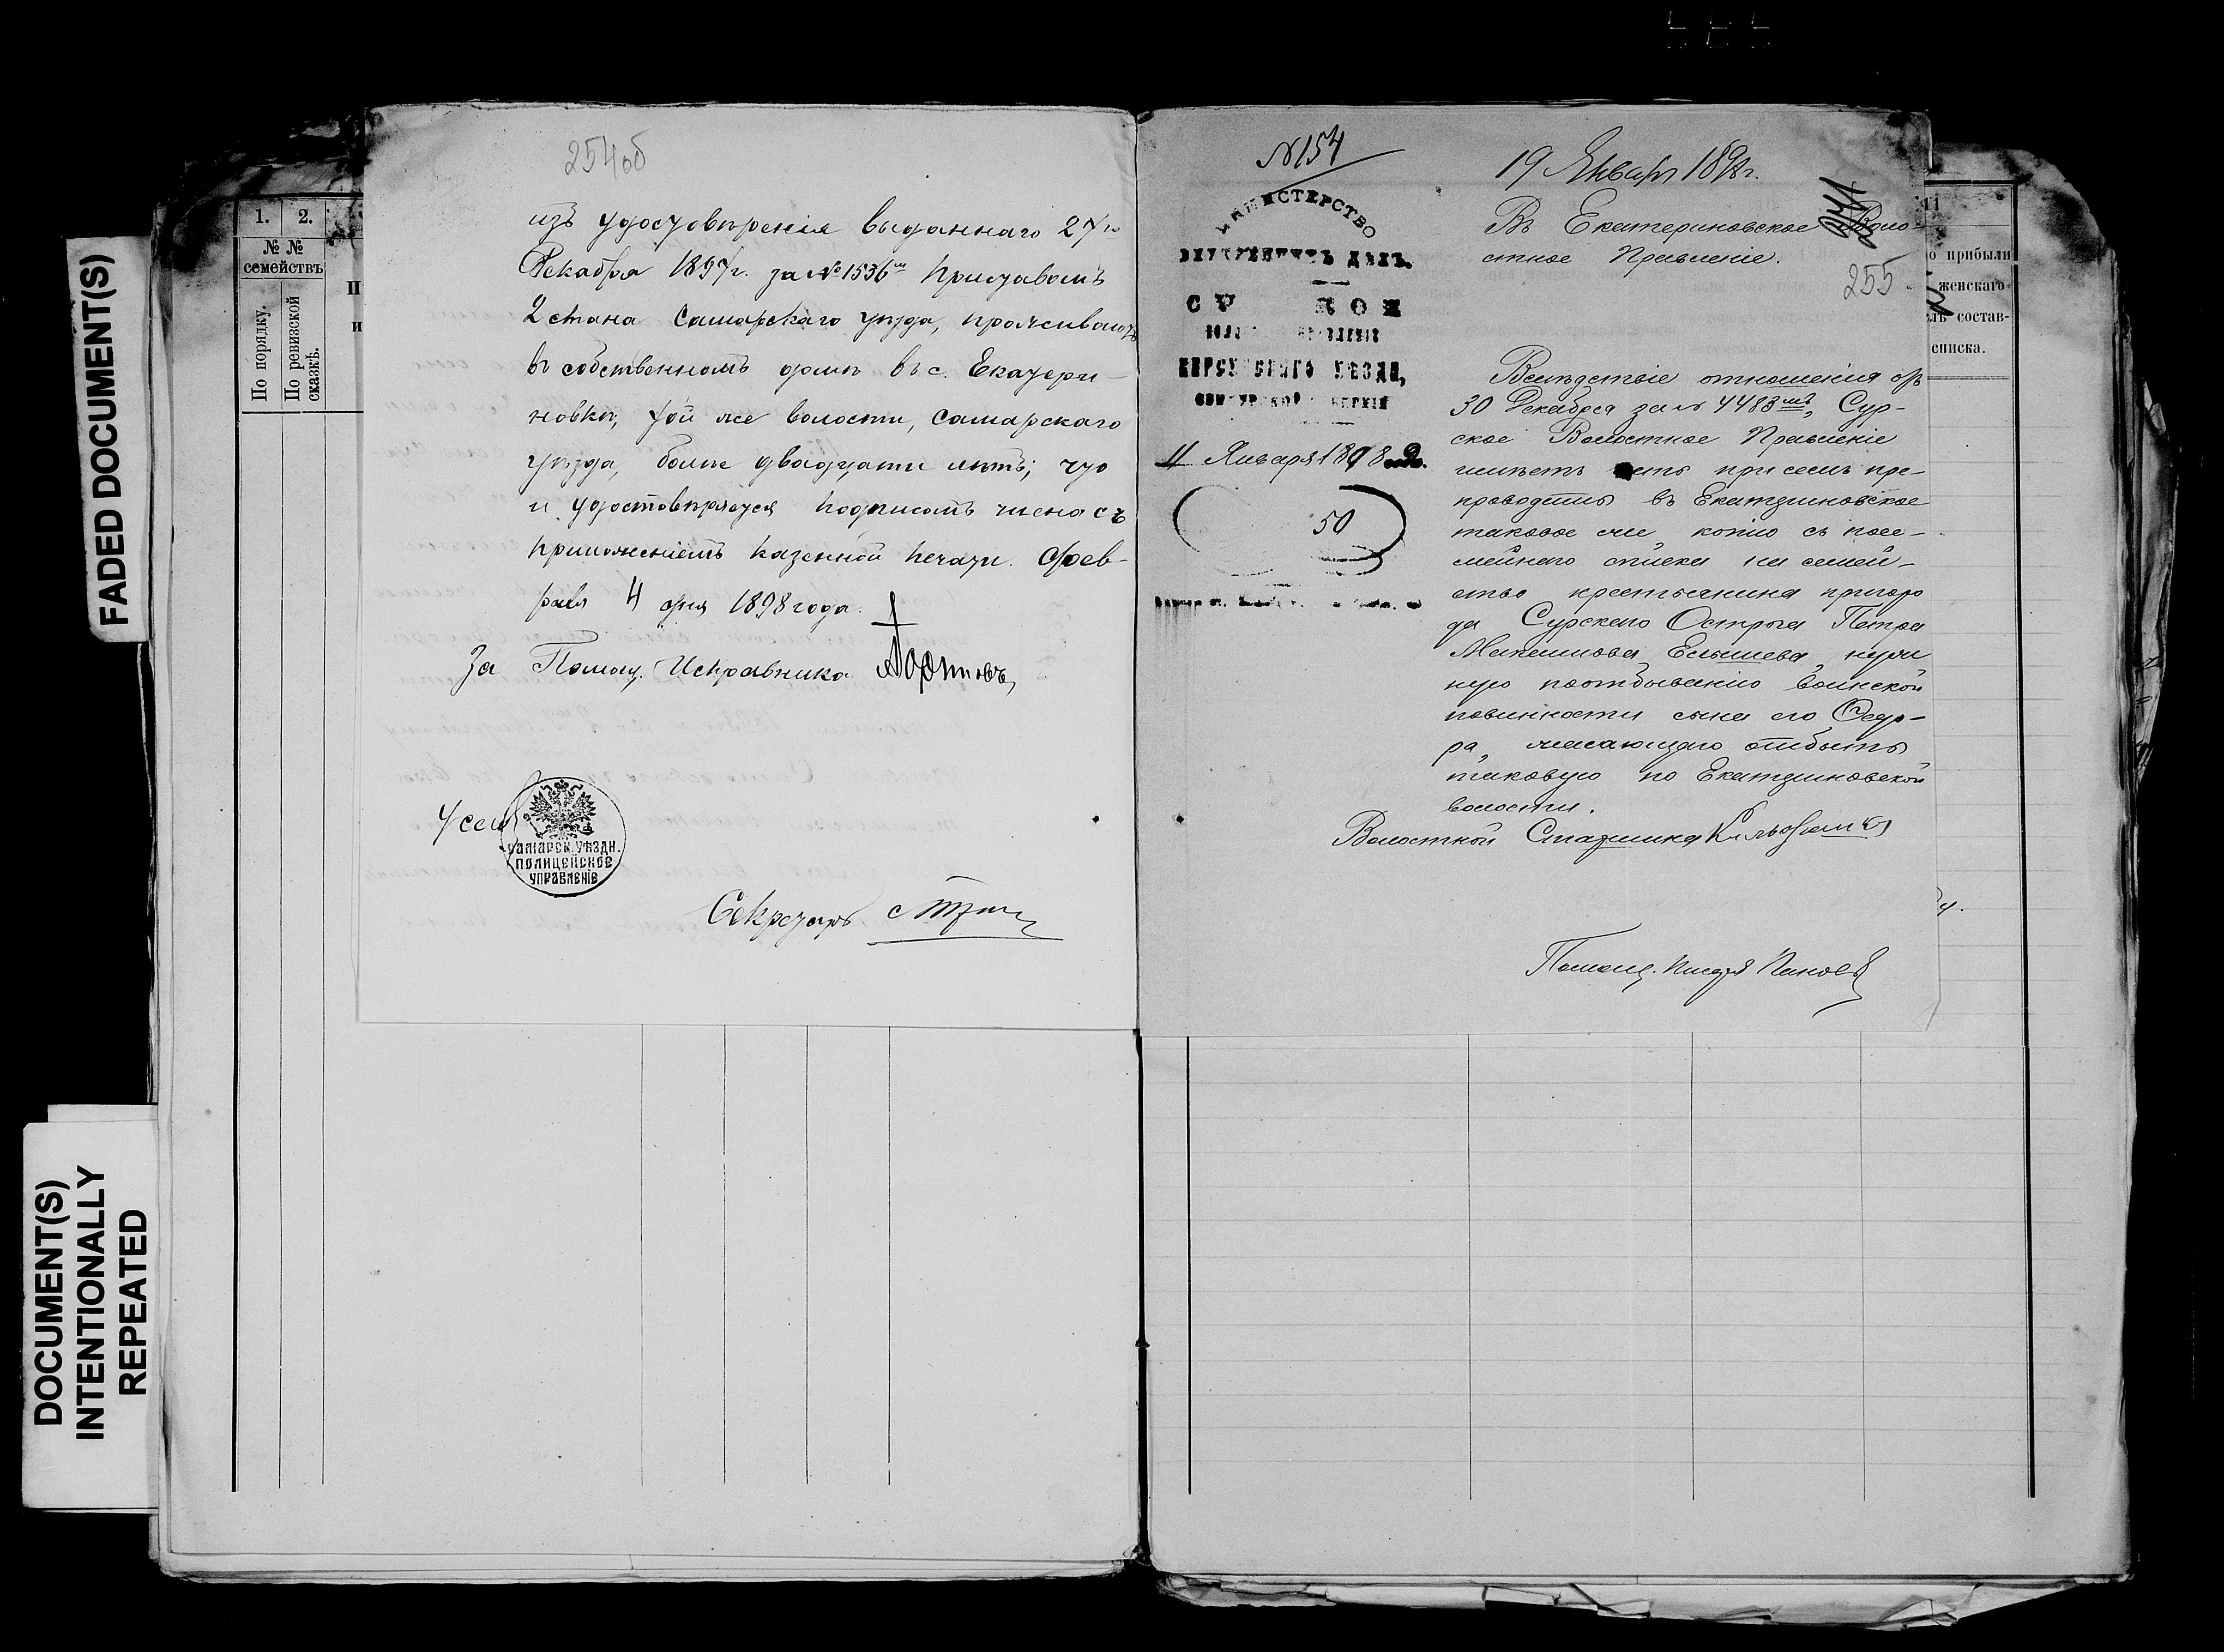 FADED DOCUMENT(S)
DOCUMENT(S)
INTENTIONALLY
REPEATED
1. 2.
№ №
семействъ
По порядку.
По ревизской
сказкѣ.
254 об
изъ удостовѣренія выданнаго 27го
Декабря 1897г. за № 1536 Приставомъ
2 стана Самарскаго уѣзда, проживаютъ
въ собственномъ домѣ въ с. Екатери-
новкѣ, той же волости, Самарскаго
уѣзда, болѣе двадцати лѣтъ; что
и удостовѣряется подписомъ числа съ
приложеніемъ казенной печати. Фев-
раля 4 дня 1898 года.
За Помощ. Исправника
Самарск. уѣздн.
полицейское
управленіе
Секретарь
№ 154
МИНИСТЕРСТВО
ВНУТРЕННИХЪ ДѢЛЪ.
1898
50
19 Января 1898г.
Въ Екатериновское Воло-
стное Правленіе.
255
Вслѣдствіе отношенія отъ
30 Декабря за № 4483мъ, Сур-
ское Волостное Правленіе
имѣетъ честь при семъ пре-
проводить въ Екатериновское
таковое же, копію съ посе-
мейнаго списка на семей-
ство крестьянина пригоро
да Сурскаго Острога Петра
Елышева, нуж
ную по отбыванію воинской
повинности сына его Ѳедо-
ра, желающаго отбыть
таковую по Екатериновской
волости.
Волостной Старшина
Помощ. Писаря Пановъ
прибыли
женскаго
состав-
списка.